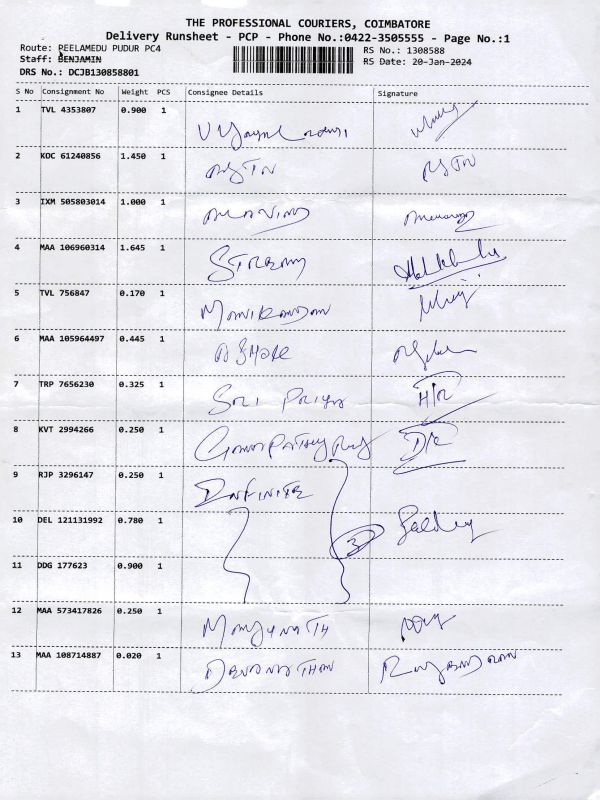 THE PROFESSIONAL COURIERS, COIMBATORE
Delivery Runsheet - PCP - Phone No.:0422-3505555 - Page No.:1
Route: PEELAMEDU PUDUR PC4 RS No.: 1308588
Staff: BENJAMIN RS Date: 20-Jan-2024
DRS No.: DCJB130858801
S No Consignment No Weight PCS Consignee Details Signature
1 TVL 4353807 0.900 1
2 KOC 61240856 1.450 1
3 IXM 505803014 1.000 1
4 MAA 106960314 1.645 1
5 TVL 756847 0.170 1 Manikandan
6 MAA 105964497 0.445 1 ASHOK
7 TRP 7656230 0.325 1 Sri Priya H/R
8 KVT 2994266 0.250 1 D/R
9 RJP 3296147 0.250 1 INFINITE
10 DEL 121131992 0.780 1 3
11 DDG 177623 0.900 1
12 MAA 573417826 0.250 1 Manjunath
13 MAA 108714887 0.020 1 Devanathan